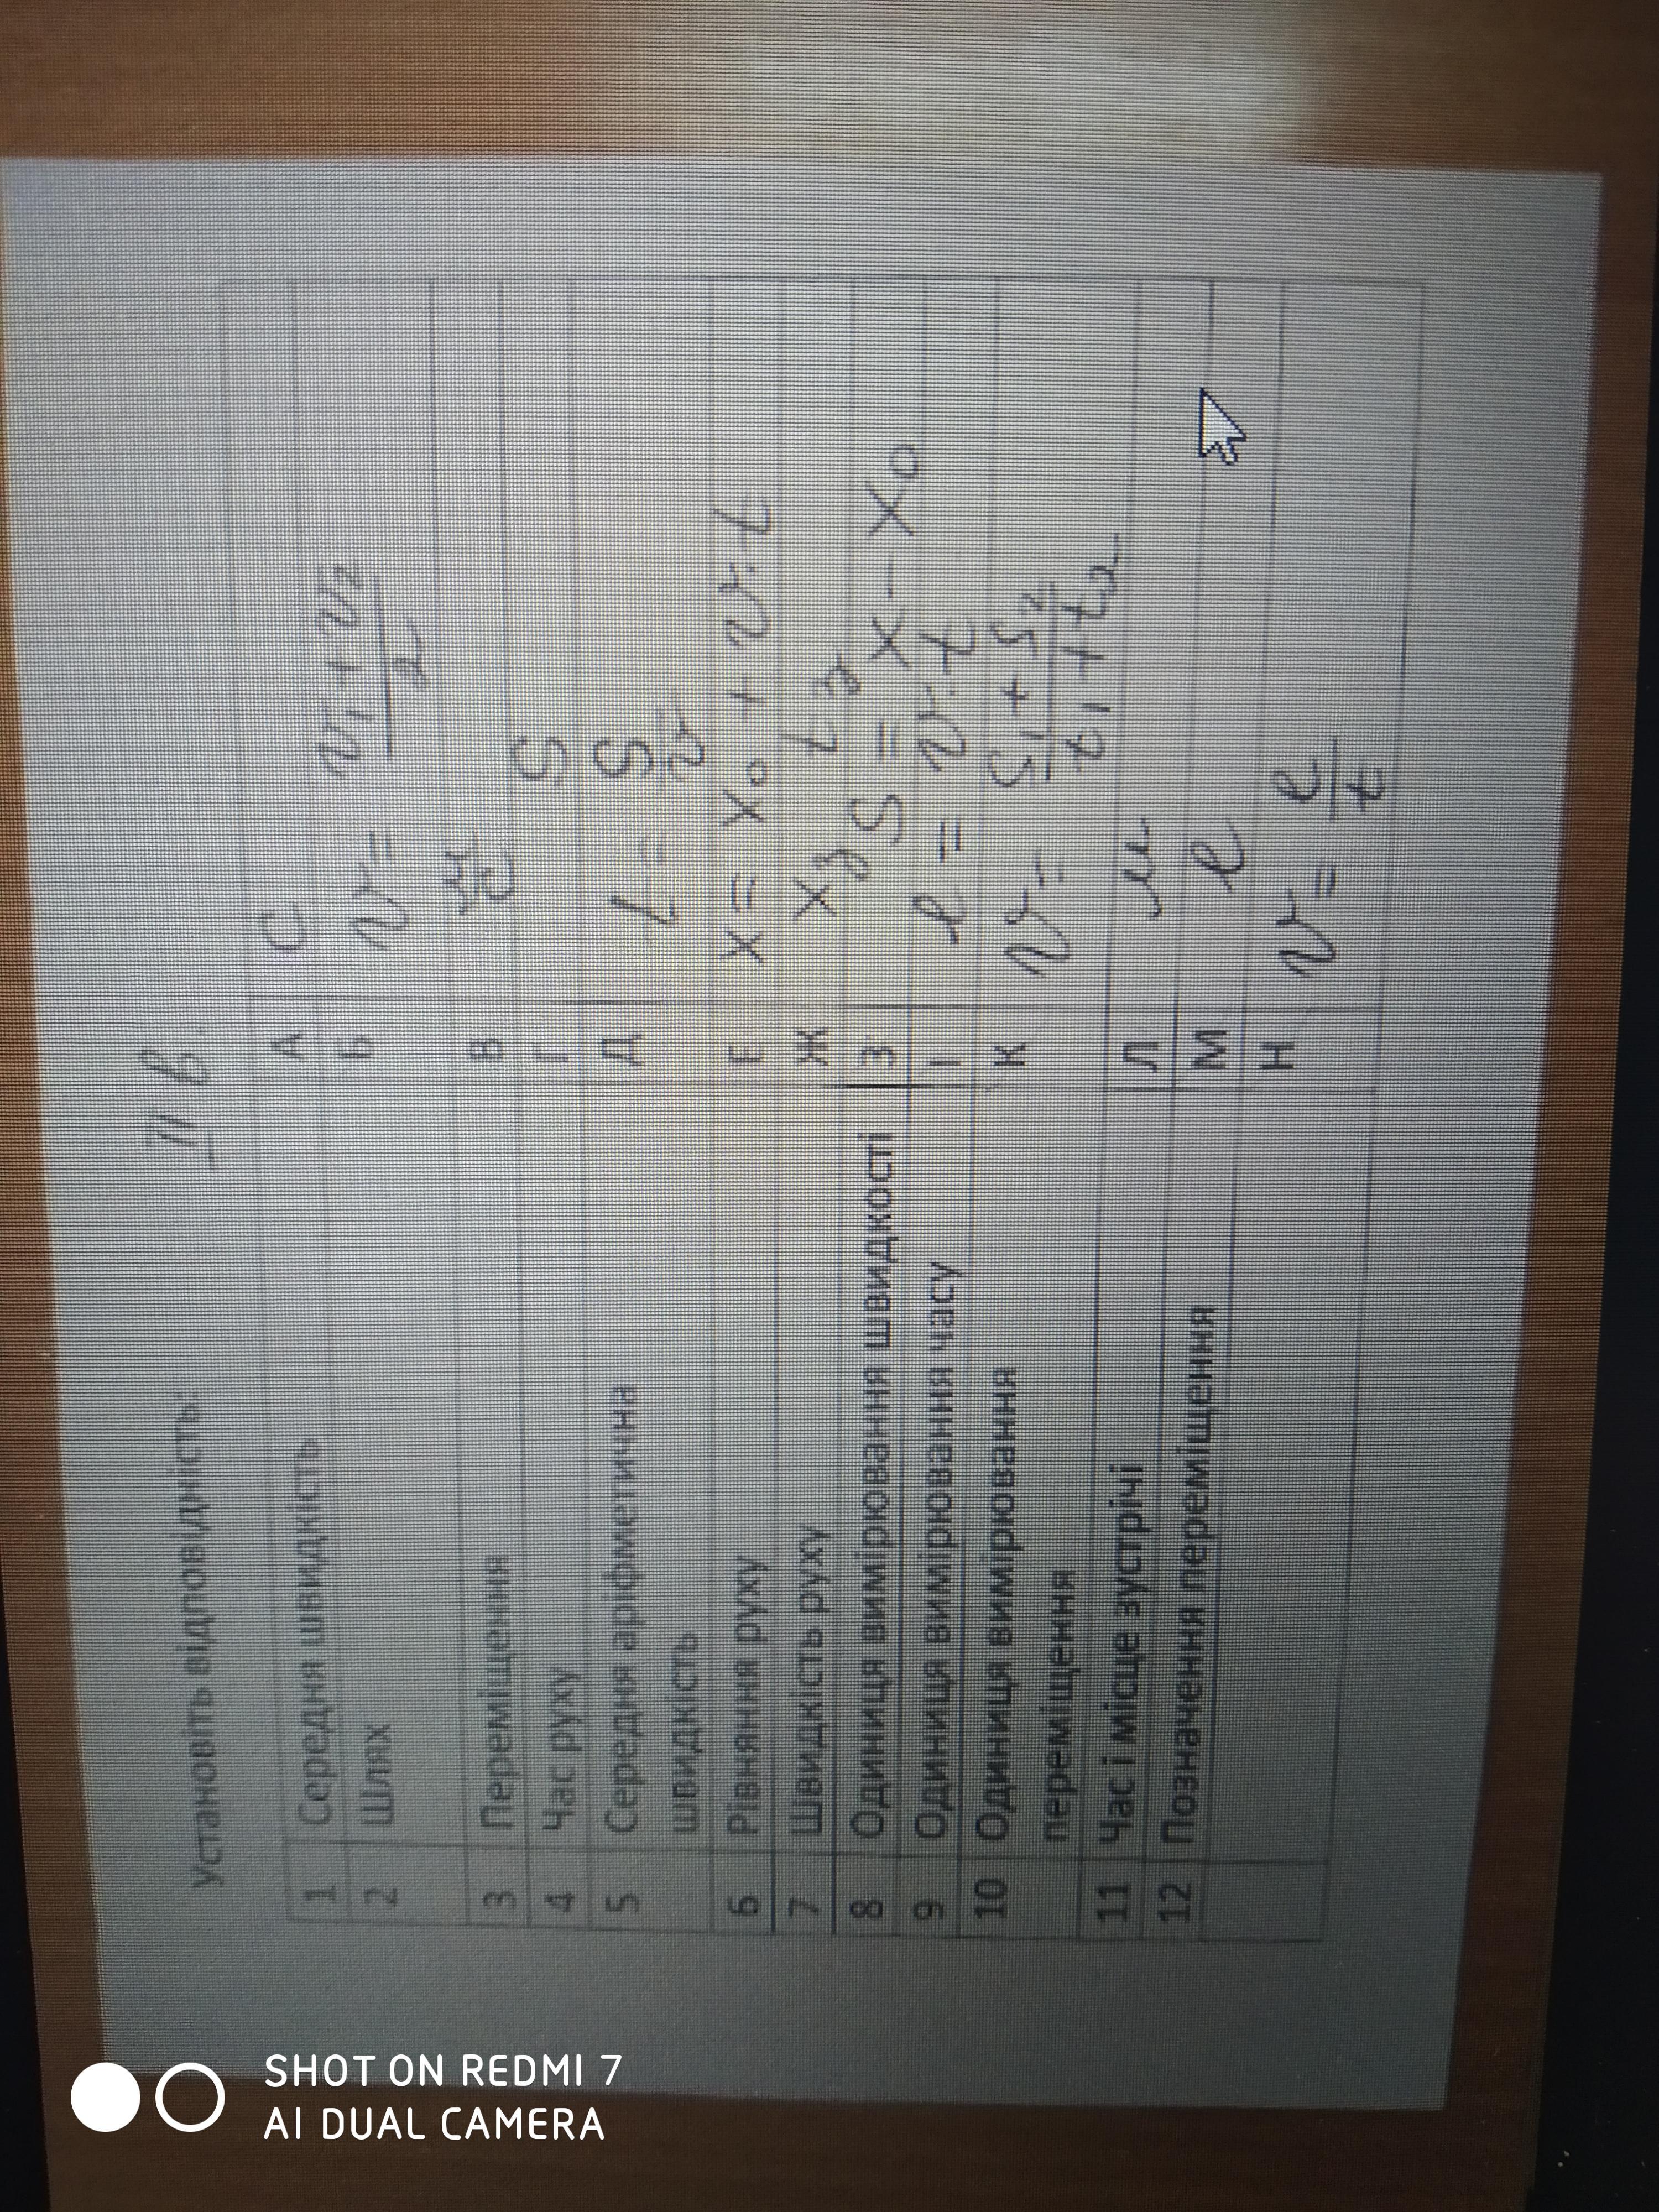 II в.
Установіть відповідність:
1 Середня швидкість А с
2 Шлях Б v = (v₁ + v₂)/2
3 Переміщення В м/с
4 Час руху Г S
5 Середня аріфметична швидкість Д t = S/v
6 Рівняння руху Е x = x₀ + v·t
7 Швидкість руху Ж xз tз
8 Одиниця вимірювання швидкості З S = x – x₀
9 Одиниця вимірювання часу І l = v·t
10 Одиниця вимірювання переміщення К v = (S₁ + S₂)/(t₁ + t₂)
11 Час і місце зустрічі Л м
12 Позначення переміщення М l
Н v = l/t
SHOT ON REDMI 7
AI DUAL CAMERA